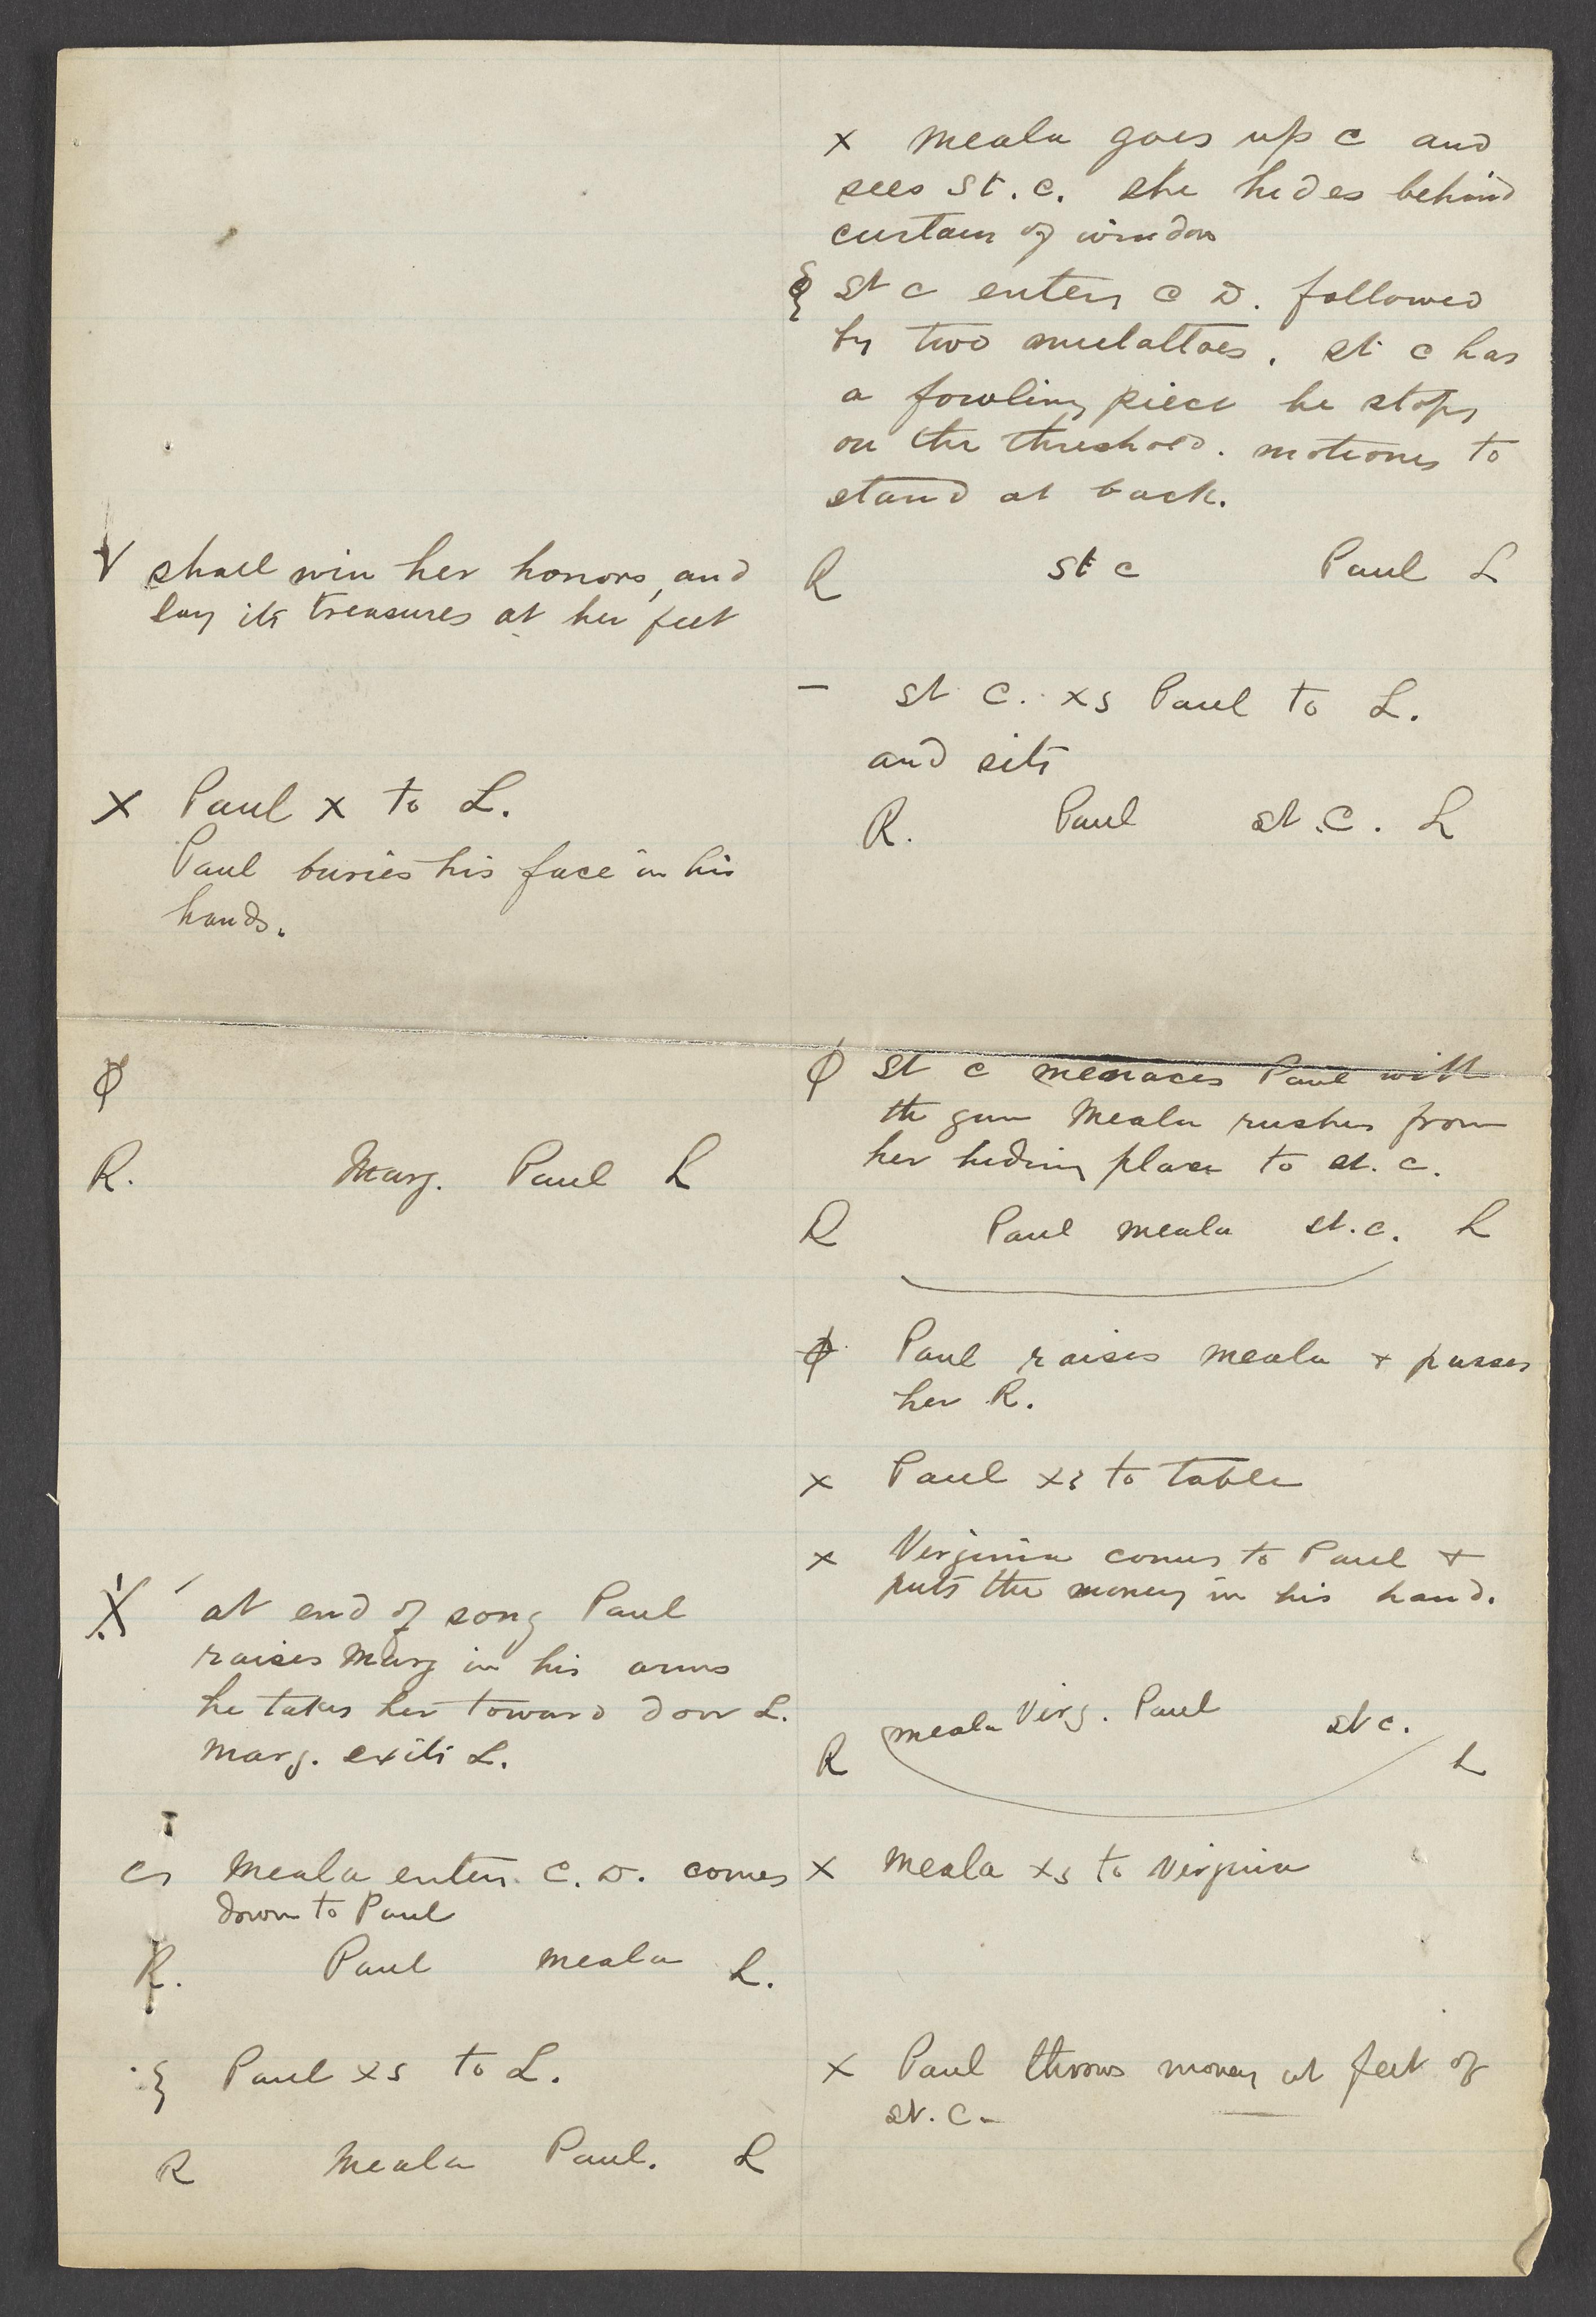 shall win her honors, and
lay its treasures at her feet
x Paul x to L.
Paul buries his face in his
hands.
R. Marg. Paul L
at end of song Paul
raises Marg in his arms
he takes her toward door L.
Marg. exits L.
Meala enters C. D. comes
down to Paul
R. Paul Meala L.
Paul xs to L.
R Meala Paul. L
x Meala goes up C and
sees St. C. she hides behind
curtain of window
St C enters C D. followed
by two mulattoes. St C has
a fowling piece he stops
on the threshold. motions to
stand at back.
R St C Paul L
– St C. xs Paul to L.
and sits
R. Paul St. C. L
φ St C menaces Paul with
the gun Meala rushes from
her hiding place to St. C.
R Paul Meala St. C. L
φ Paul raises Meala + passes
her R.
x Paul xs to table
x Virginia comes to Paul +
puts the money in his hand.
R Meala Virg. Paul St C. L
x Meala xs to Virginia
x Paul throws money at feet of
St. C.